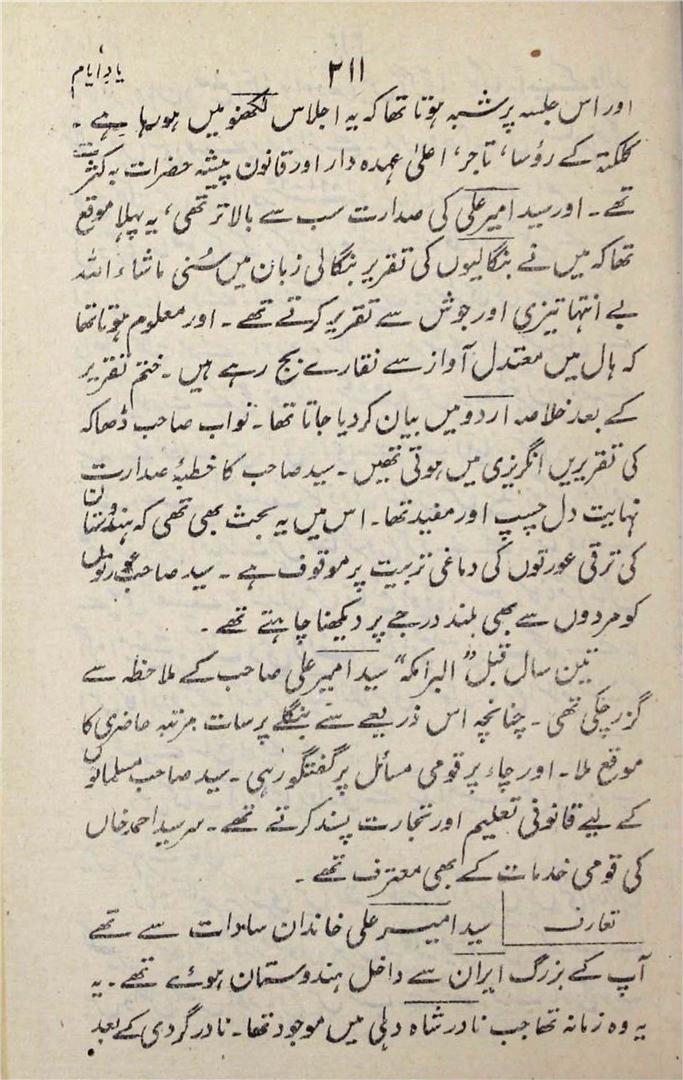 یادِ ایام
۲۱۱
اور اس جلسہ پر شبہ ہوتا تھا کہ یہ اجلاس لکھنؤ میں ہو رہا ہے ۔
کلکتہ کے رؤسا، تاجر، اعلیٰ عہدہ دار اور قانون پیشہ حضرات بہ کثرت
تھے ۔ اور سید امیر علی کی صدارت سب سے بالاتر تھی، یہ پہلا موقع
تھا کہ میں نے بنگالیوں کی تقریر بنگالی زبان میں سُنی ماشاءاللہ
بے انتہا تیزی اور جوش سے تقریر کرتے تھے ۔ اور معلوم ہوتا تھا
کہ ہال میں معتدل آواز سے نقارے بج رہے ہیں ۔ ختم تقریر
کے بعد خلاصہ اردو میں بیان کر دیا جاتا تھا ۔ نواب صاحب ڈھاکہ
کی تقریریں انگریزی میں ہوتی تھیں ۔ سید صاحب کا خطبۂ صدارت
نہایت دل چسپ اور مفید تھا ۔ اس میں یہ بحث بھی تھی کہ ہندوستان
کی ترقی عورتوں کی دماغی تربیت پر موقوف ہے ۔ سید صاحب عورتوں
کو مردوں سے بھی بلند درجے پر دیکھنا چاہتے تھے ۔
تین سال قبل "البرامکہ" سید امیر علی صاحب کے ملاحظہ سے
گزر چکی تھی ۔ چنانچہ اس ذریعے سے بنگلے پر سات مرتبہ حاضری کا
موقع ملا ۔ اور چاء پر قومی مسائل پر گفتگو رہی ۔ سید صاحب مسلمانوں
کے لیے قانونی تعلیم اور تجارت پسند کرتے تھے ۔ سر سید احمد خاں
کی قومی خدمات کے بھی معترف تھے ۔
تعارف سید امیر علی خاندان سادات سے تھے
آپ کے بزرگ ایران سے داخل ہندوستان ہوئے تھے ۔ یہ
یہ وہ زمانہ تھا جب نادر شاہ دہلی میں موجود تھا ۔ نادر گردی کے بعد